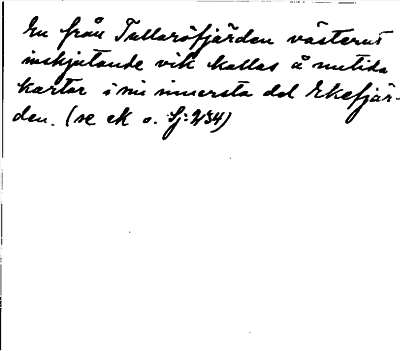 En från Tallaröfjärden västerut
inskjutande vik kallas å nutida
kartor i sin innersta del Ekefjär-
den. (se ek o. Sj:234)